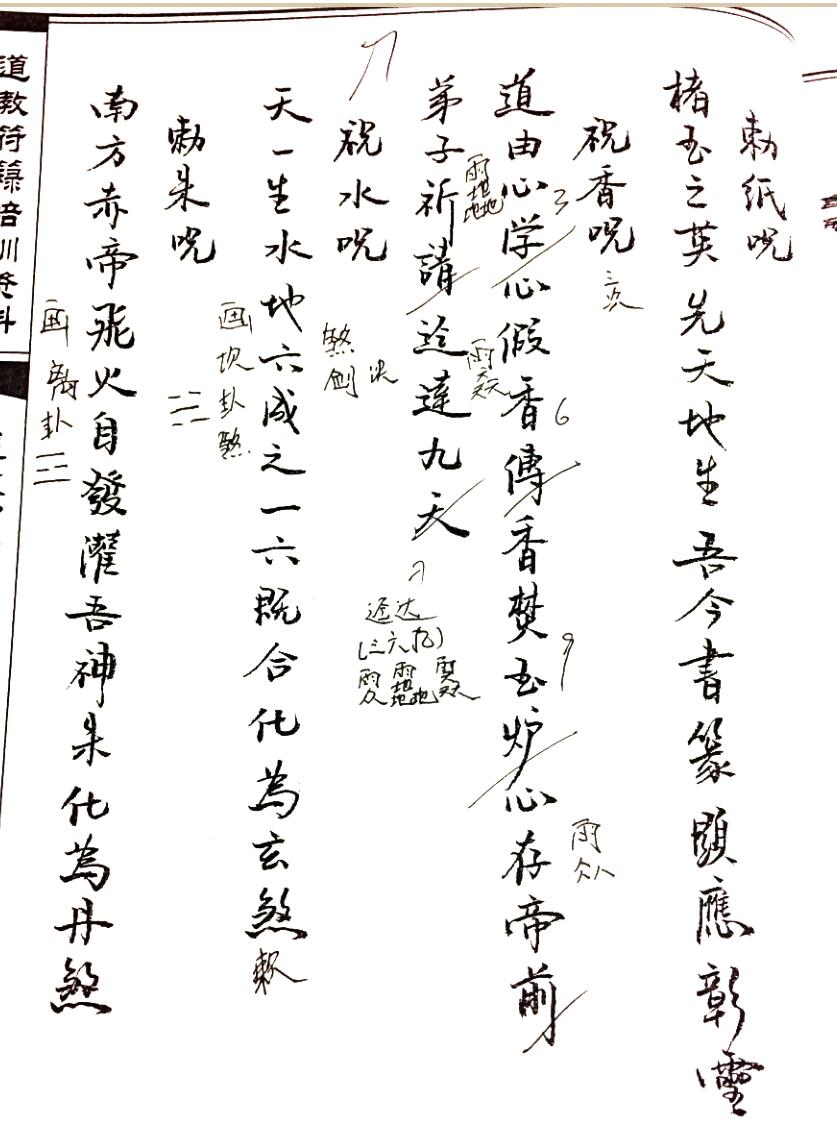 勅紙呪
楮玉之英先天地生吾今書篆顕應彰靈
祝香呪
三次
道由心学心假香傳香焚玉炉心存帝前
3
6
9
弟子祈請迳達九天
迳达
(三六九)
祝水呪
煞剑决
天一生水地六成之一六既合化為玄煞
敕
画坎卦煞
勅朱呪
南方赤帝飛火自發灌吾神朱化為丹煞
画离卦
道教符籙培训资料